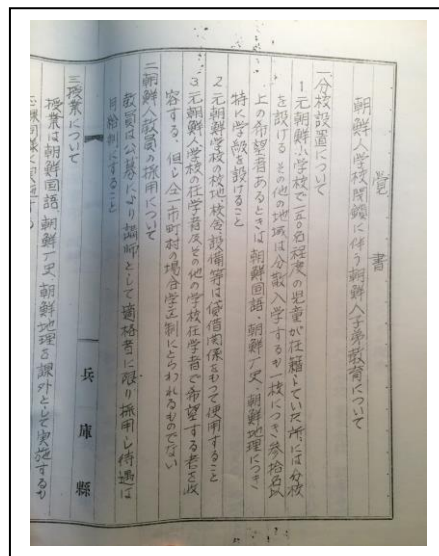 覚書
朝鮮人学校閉鎖に伴う朝鮮人子弟教育について
一分校設置について
1 元朝鮮人小学校で一五〇名程度の児童が在籍していた所には分校
を設ける その他の地域は分散入学するも一校につき参拾名以
上の希望者あるときは朝鮮国語、朝鮮广史、朝鮮地理につき
特に学級を設けること
2 元朝鮮学校の校地校舎、設備等は貸借関係をもって使用すること
3 元朝鮮人学校の在学者及その他の学校在学者で希望する者を收
容する、但し仝一市町村の場合学区制にとらわれるものでない
二朝鮮人教員の採用について
教員は公募により講師として適格者に限り採用し待遇は
月給制にすること
三授業について
授業は朝鮮国語、朝鮮广史、朝鮮地理を課外として実施するも
兵庫縣